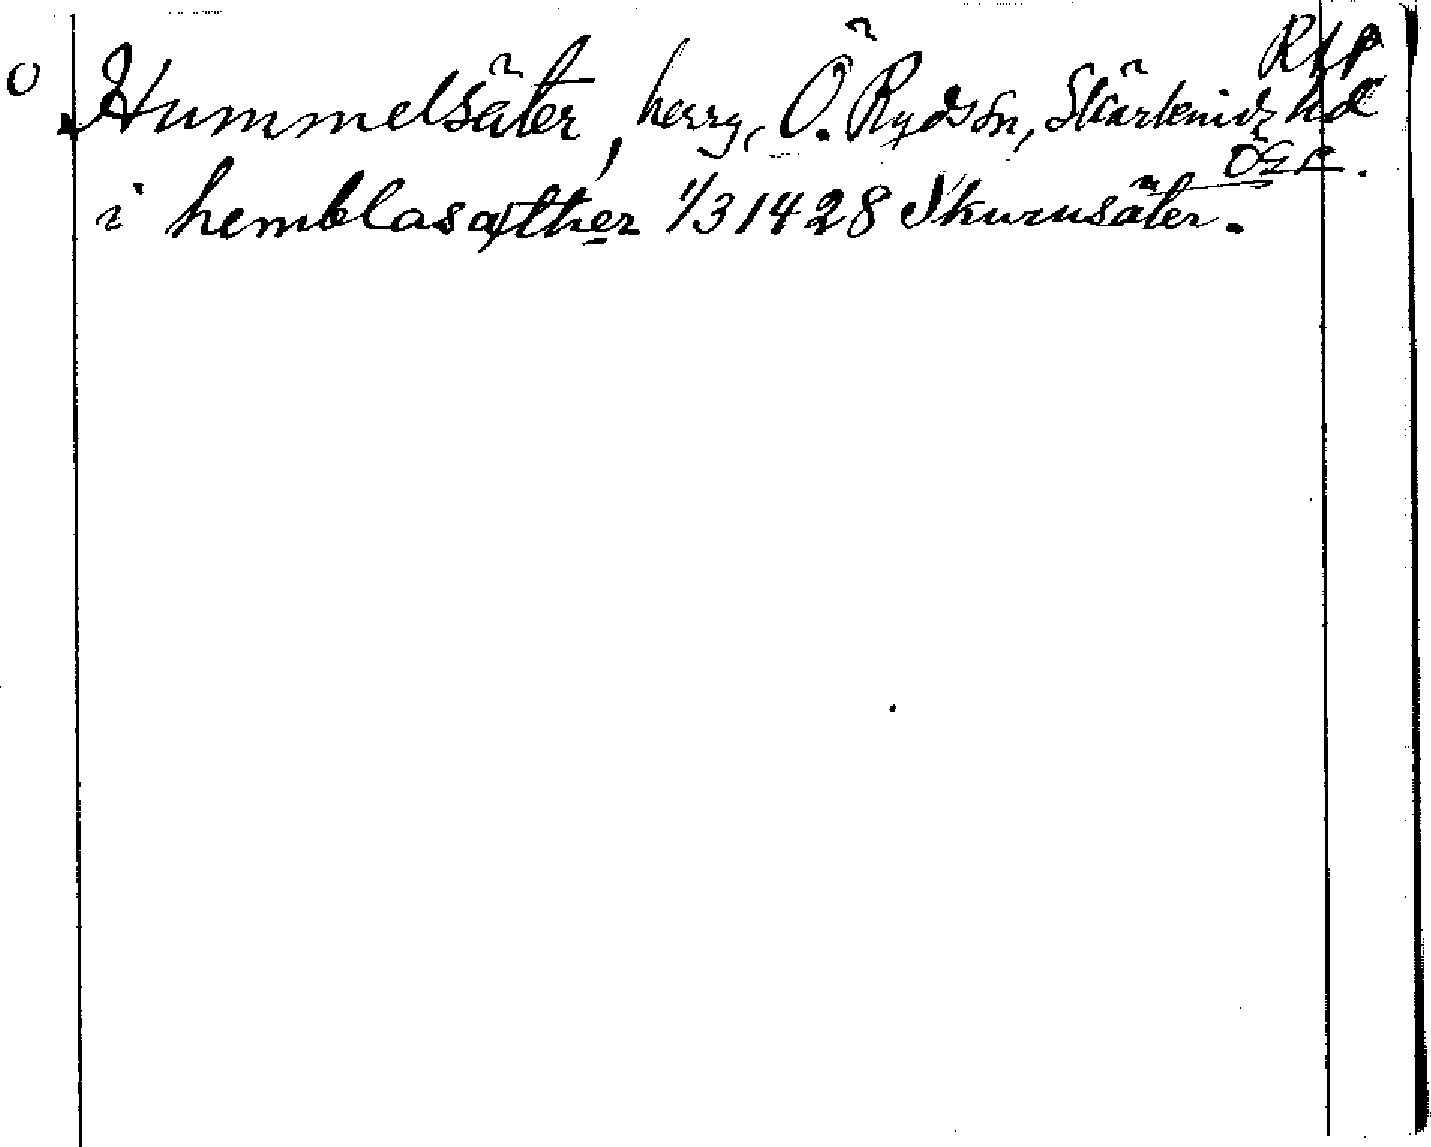 RAp
O Hummelsäter, herrg, Ö. Ryds sn, Skärkinds hd
ÖGL.
i hemblasæther 1/3 1428 Skurusäter.